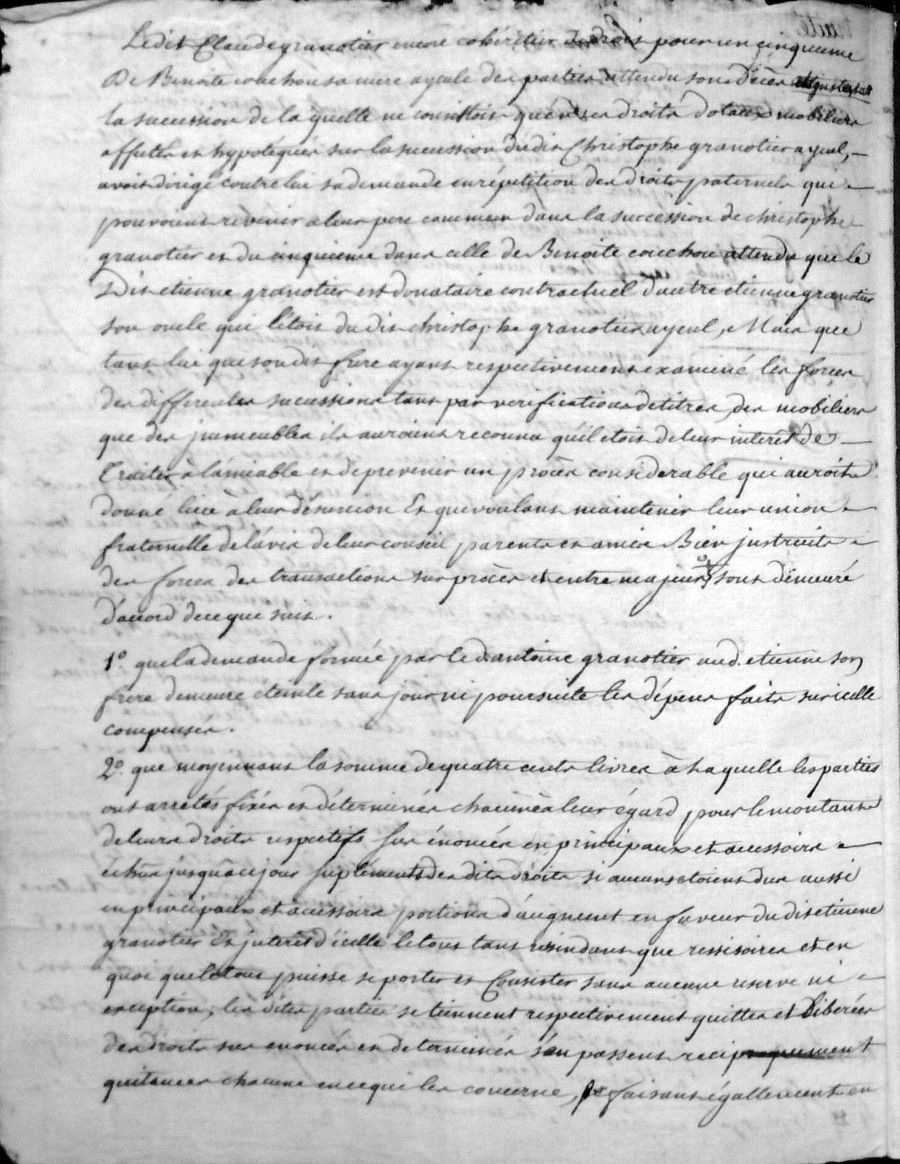 Ledit Claude granotier encore cohéritier de droit pour un cinquieme
De Benoite couchou sa mere ayeule des parties attendu son décès
la succession de la quelle ne consistoit qu'en ses droits dotaux mobiliers
affectés et hypotéqués sur la succession dudit Christophe granotier ayeul,
avoit dirigé contre lui sa demande en répétition des droits paternels qui
pouvoient révénir à leur pere commun dans la succession de christophe
granotier et du cinquieme dans celle de Benoite couchou attendu que le
Dit etienne granotier est donataire contractuel d'autre etienne granotier
son oncle qui l'étoit du dit christophe granotier ayeul, Mais que
tant lui que son dit frere ayant respectivement examiné les forces
des differentes successions tant par verifications de titres, des mobiliers
que des jmmeubles ils auroient reconnu qu'il étoit de leur interêt de
traiter à l'amiable et de prevenir un procès considerable qui auroit
donné lieu à leur désunion Et que voulant maintenir leur union
fraternelle de l'avis de leur conseil parents et amis Bien jnstruits
des forces des transactions sur procès et entre majeurs sont demeuré
d'accord de ce que suit.
1º. que la demande formée par led. antoine granotier aud. etienne son
frere demeure eteinte sans jour ni poursuite les dépens faits sur icelle
compensés.
2º. que moyennant la somme de quatre cents livres à laquelle les parties
ont arretés fixés et déterminés chacune à leur égard pour le montant
de leurs droits respectifs sus énoncés en principaux et accessoires
échus jusqu'à ce jour suplément des dits droits si aucuns etoient dus aussi
en principaux et accessoires portions d'augment en faveur du dit etienne
granotier Et jnterêt d'icelle le tout tant résindant que ressisoires et en
quoi que le tout puisse se porter et Consister sans aucune reserve ni
exception, les dites parties se tiennent respectivement quittes et Libérées
des droits sus enoncés et determinés s'en passent reciproquement
quitances chacune en ce qui les concerne, se faisant égallement en